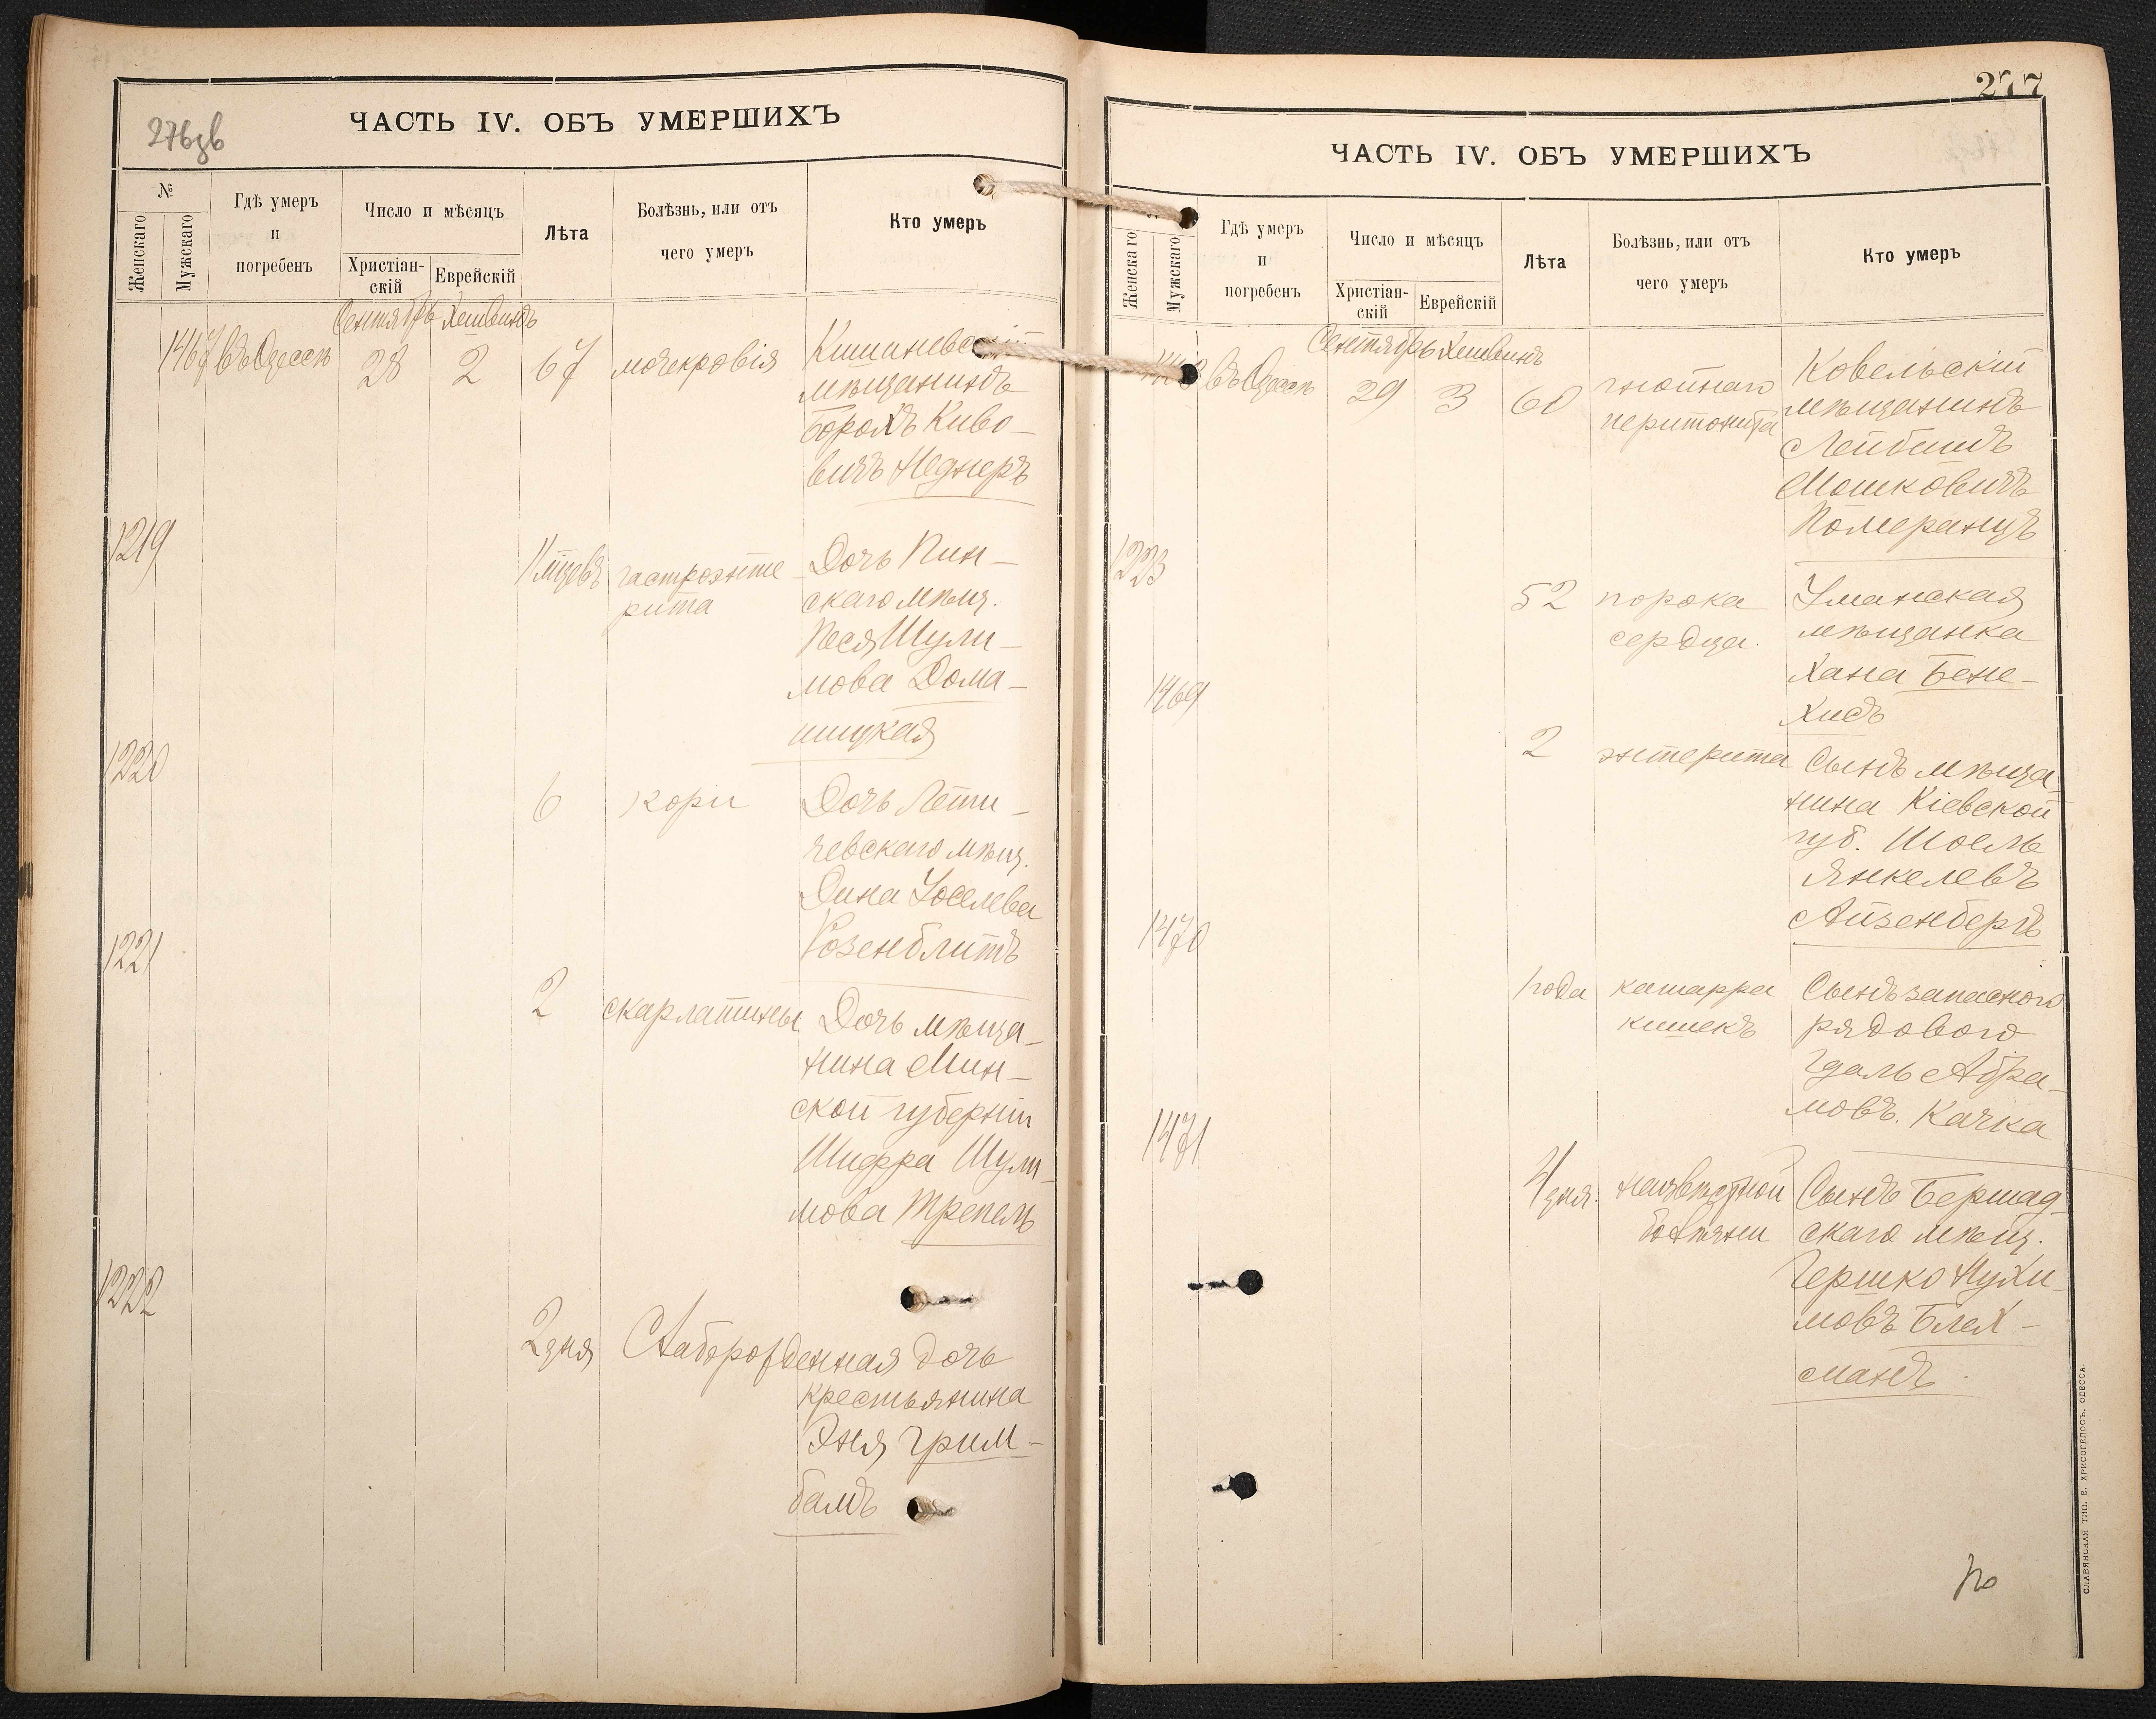 276зв
ЧАСТЬ IV. ОБЪ УМЕРШИХЪ
№
Женскаго
Мужскаго
Гдѣ умеръ
и
погребенъ
Число и мѣсяцъ
Христіан-
скій
Еврейскій
Лѣта
Болѣзнь, или отъ
чего умеръ
Кто умеръ
Сентябрь Хешвинъ
1467 въ Одессѣ 28 2 67 мочекровія Кишиневскій
мѣщанинъ
Борохъ Киво-
вичъ Неднеръ
1219
11 мѣцевъ гастроэнте- Дочь Пин-
рита скаго мѣщ.
Песя Шули-
мова Дома-
шицкая
1220
6 кори Дочь Лети-
чевскаго мѣщ.
Дина Іоселева
Розенблитъ
1221
2 скарлатины Дочь мѣща-
нина Мин-
ской губерніи
Шифра Шули-
мова Трепель
1222
2 дня Слаборожденная дочь
крестьянина
Эня Грим-
балъ
277
ЧАСТЬ IV. ОБЪ УМЕРШИХЪ
Женскаго
Мужскаго
Гдѣ умеръ
и
погребенъ
Число и мѣсяцъ
Христіан-
скій
Еврейскій
Лѣта
Болѣзнь, или отъ
чего умеръ
Кто умеръ
Сентябрь Хешвинъ
1468 въ Одессѣ 29 3 60 гнойнаго Ковельскій
перитонита мѣщанинъ
Лейбишъ
Мошковичъ
Померанцъ
1223
52 порока Уманская
сердца. мѣщанка
Хана Бене-
хисъ
1469
2 энтерита Сынъ мѣща-
нина Кіевской
губ. Шоель
Янкелевъ
Айзенбергъ
1470
1 года катарра Сынъ запасного
кишекъ рядового
Гдаль Абра-
мовъ. Качка
1471
4 дня. неизвѣстной Сынъ Бершад-
болѣзни скаго мѣщ.
Гершко Нухи-
мовъ Блех-
манъ.
СЛАВЯНСКАЯ ТИП. Е. ХРИСОГЕЛОСЪ, ОДЕССА.